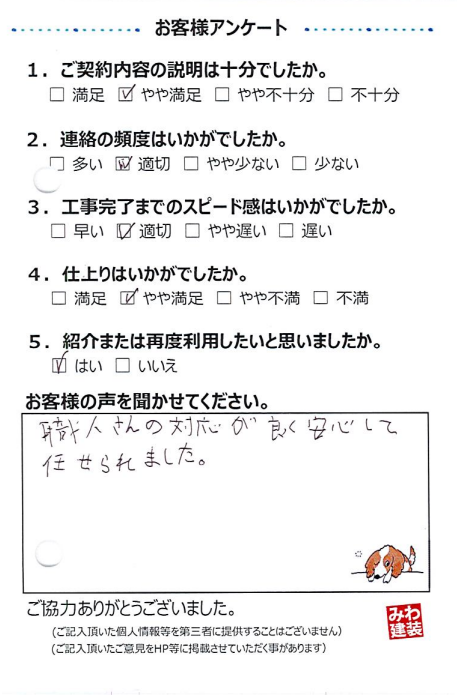 お客様アンケート
1．ご契約内容の説明は十分でしたか。
□ 満足 ☑ やや満足 □ やや不十分 □ 不十分
2．連絡の頻度はいかがでしたか。
□ 多い ☑ 適切 □ やや少ない □ 少ない
3．工事完了までのスピード感はいかがでしたか。
□ 早い ☑ 適切 □ やや遅い □ 遅い
4．仕上りはいかがでしたか。
□ 満足 ☑ やや満足 □ やや不満 □ 不満
5．紹介または再度利用したいと思いましたか。
☑ はい □ いいえ
お客様の声を聞かせてください。
職人さんの対応が良く安心して
任せられました。
ご協力ありがとうございました。
(ご記入頂いた個人情報等を第三者に提供することはございません)
(ご記入頂いたご意見をHP等に掲載させていただく事があります)
みわ
建装